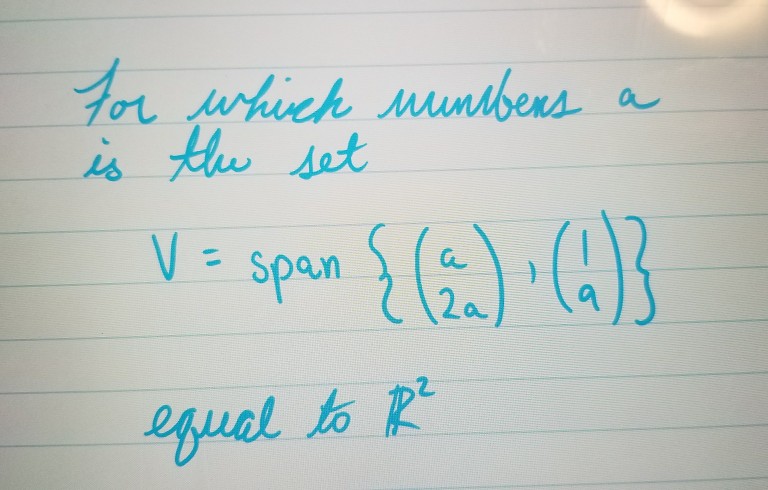 For which numbers a
is the set
V = span {(a 2a), (1 a)}
equal to ℝ²